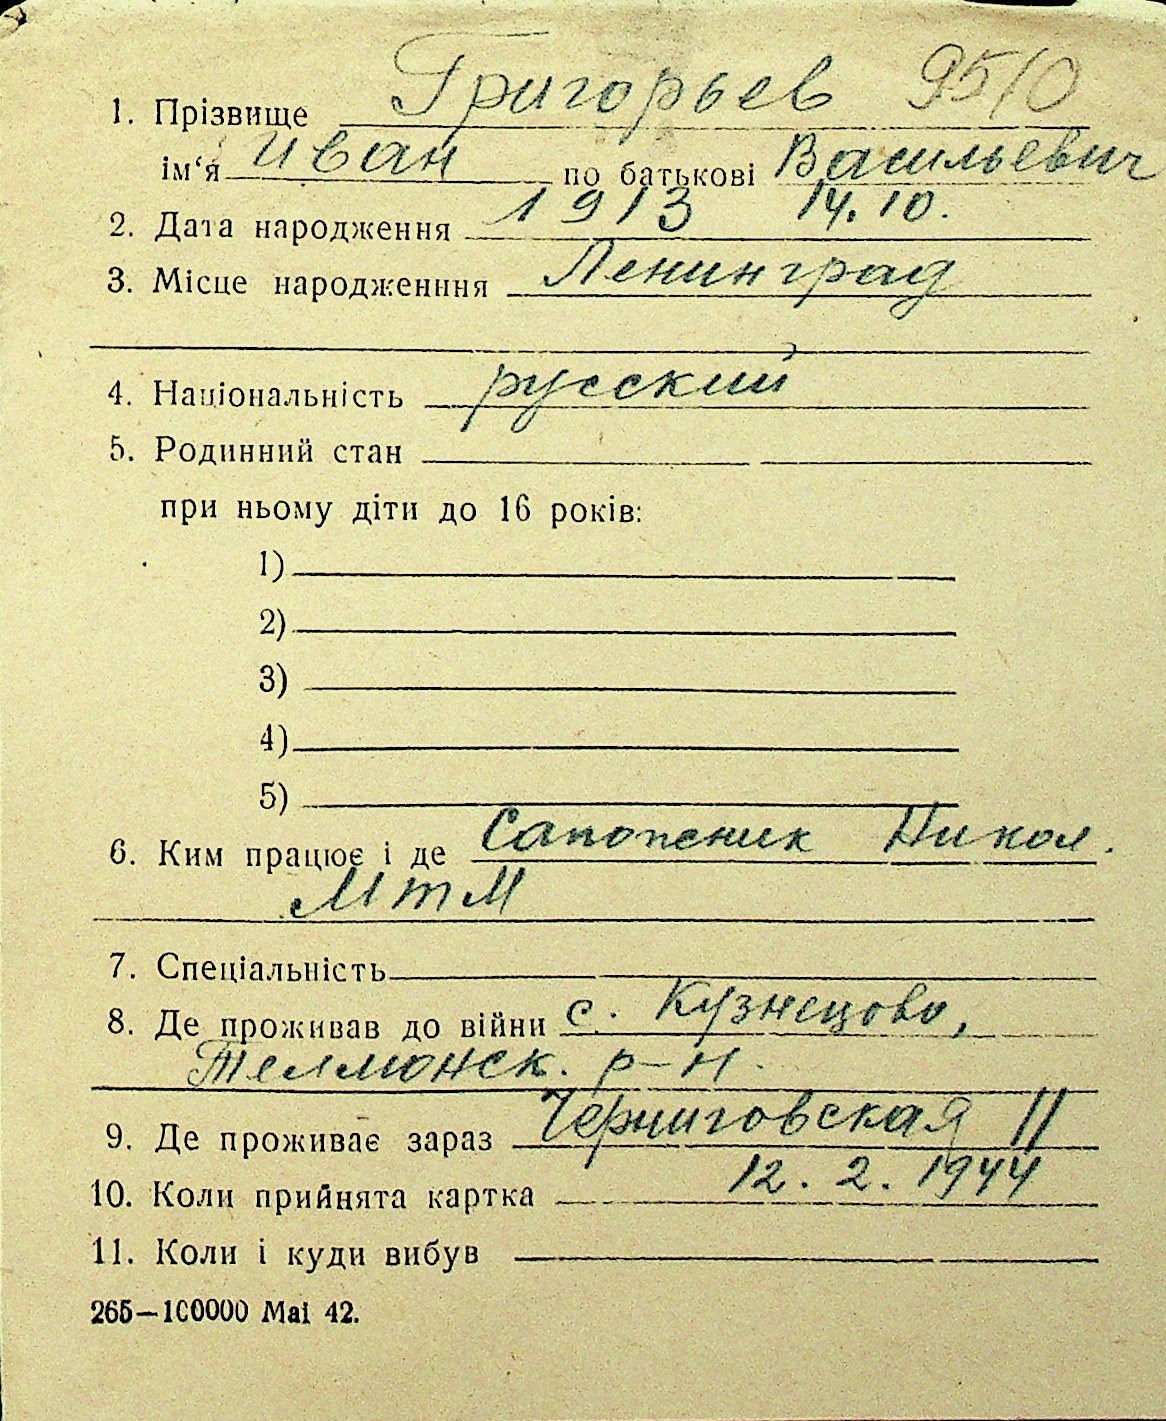 Григорьев 9510
1. Прізвище
ім‘я Иван по батькові Васильевич
2. Дата народження 1913 14.10.
3. Місце народженння Ленинград
4. Національність русский
5. Родинний стан
при ньому діти до 16 років:
1)
2)
3)
4)
5)
6. Ким працює і де Сапожник Никол.
МТМ
7. Спеціальність
8. Де проживав до війни с. Кузнецово,
Телманск. р-н.
9. Де проживає зараз Черниговская 11
10. Коли прийнята картка 12. 2. 1944
11. Коли і куди вибув
265—100000 Mai 42.